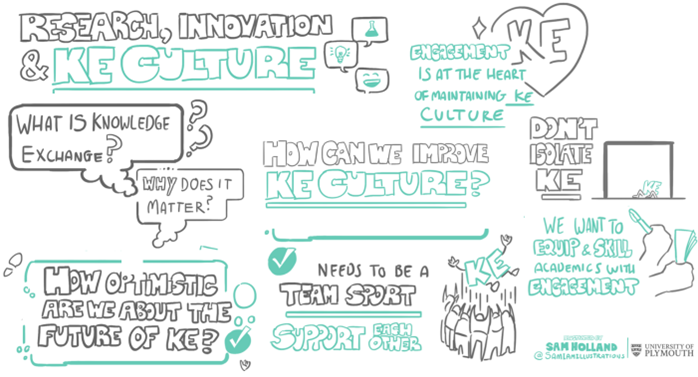 RESEARCH, INNOVATION
& KE CULTURE
ENGAGEMENT
KE
IS AT THE HEART
OF MAINTAINING KE
CULTURE
WHAT IS KNOWLEDGE
EXCHANGE?
WHY DOES IT
MATTER?
HOW CAN WE IMPROVE
KE CULTURE?
DON'T
ISOLATE
KE
KE
WE WANT TO
EQUIP & SKILL
ACADEMICS WITH
ENGAGEMENT
HOW OPTIMISTIC
ARE WE ABOUT THE
FUTURE OF KE?
NEEDS TO BE A
TEAM SPORT
SUPPORT EACH
OTHER
KE
SAM HOLLAND
@SAMIAMILLUSTRATIONS
UNIVERSITY OF
PLYMOUTH